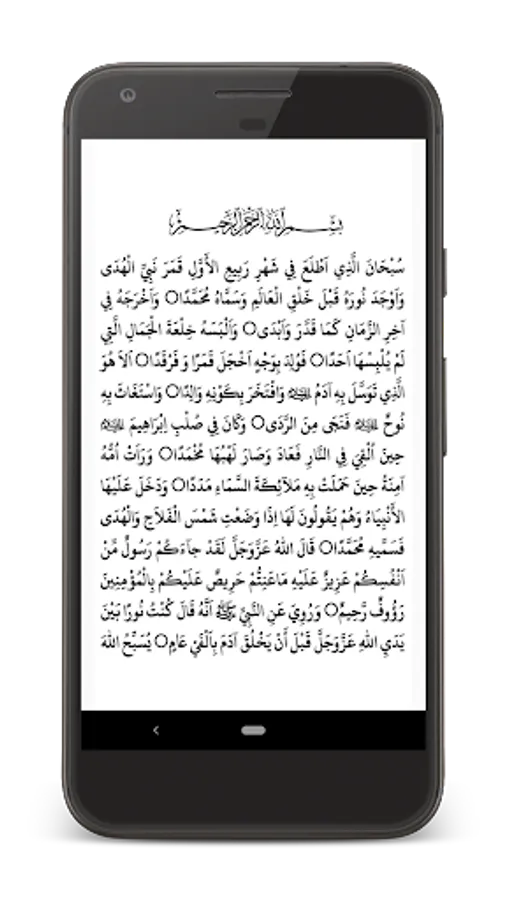 بِسْمِ اللهِ الرَّحْمٰنِ الرَّحِيْمِ
سُبْحَانَ الَّذِي اَطْلَعَ فِي شَهْرِ رَبِيعِ الأَوَّلِ قَمَرَ نَبِيِّ الْهُدَى
وَاَوْجَدَ نُورَهُ قَبْلَ خَلْقِ الْعَالَمِ وَسَمَّاهُ مُحَمَّدًا○ وَاَخْرَجَهُ فِي
آخِرِ الزَّمَانِ كَمَا قَدَّرَ وَاَبْدَى○ وَاَلْبَسَهُ خِلْعَةَ الْجَمَالِ الَّتِي
لَمْ يُلْبِسْهَا اَحَدًا○ فَوُلِدَ بِوَجْهٍ اَخْجَلَ قَمَرًا وَ فَرْقَدًا○ اَلاَ هُوَ
الَّذِي تَوَسَّلَ بِهِ آدَمُ ﷺ وَافْتَخَرَ بِكَوْنِهِ وَالِدًا○ وَاسْتَغَاثَ بِهِ
نُوحٌ ﷺ فَنَجَى مِنَ الرَّدَى○ وَكَانَ فِي صُلْبِ اِبْرَاهِيمَ ﷺ
حِينَ اُلْقِيَ فِي النَّارِ فَعَادَ وَصَارَ لَهَبُهَا مُخْمَدًا○ وَرَاَتْ اُمُّهُ
آمِنَةُ حِينَ حَمَلَتْ بِهِ مَلاَئِكَةَ السَّمَاءِ مَدَدًا○ وَدَخَلَ عَلَيْهَا
الأَنْبِيَاءُ وَهُمْ يَقُولُونَ لَهَا اِذَا وَضَعْتِ شَمْسَ الْفَلاَحِ وَالْهُدَى
فَسَمِّيهِ مُحَمَّدًا○ قَالَ اللهُ عَزَّوَجَلَّ لَقَدْ جاَءَكُمْ رَسُولٌ مِّنْ
اَنْفُسِكُمْ عَزِيزٌ عَلَيْهِ مَاعَنِتُّمْ حَرِيصٌ عَلَيْكُمْ بِالْمُؤْمِنِينَ
رَؤُوفٌ رَّحِيمٌ○ وَرُوِيَ عَنِ النَّبِيِّ ﷺ اَنَّهُ قَالَ كُنْتُ نُورًا بَيْنَ
يَدَيِ اللهِ عَزَّوَجَلَّ قَبْلَ أَنْ يَخْلُقَ آدَمَ بِاَلْفَيْ عَامٍ○ يُسَبِّحُ اللهَ